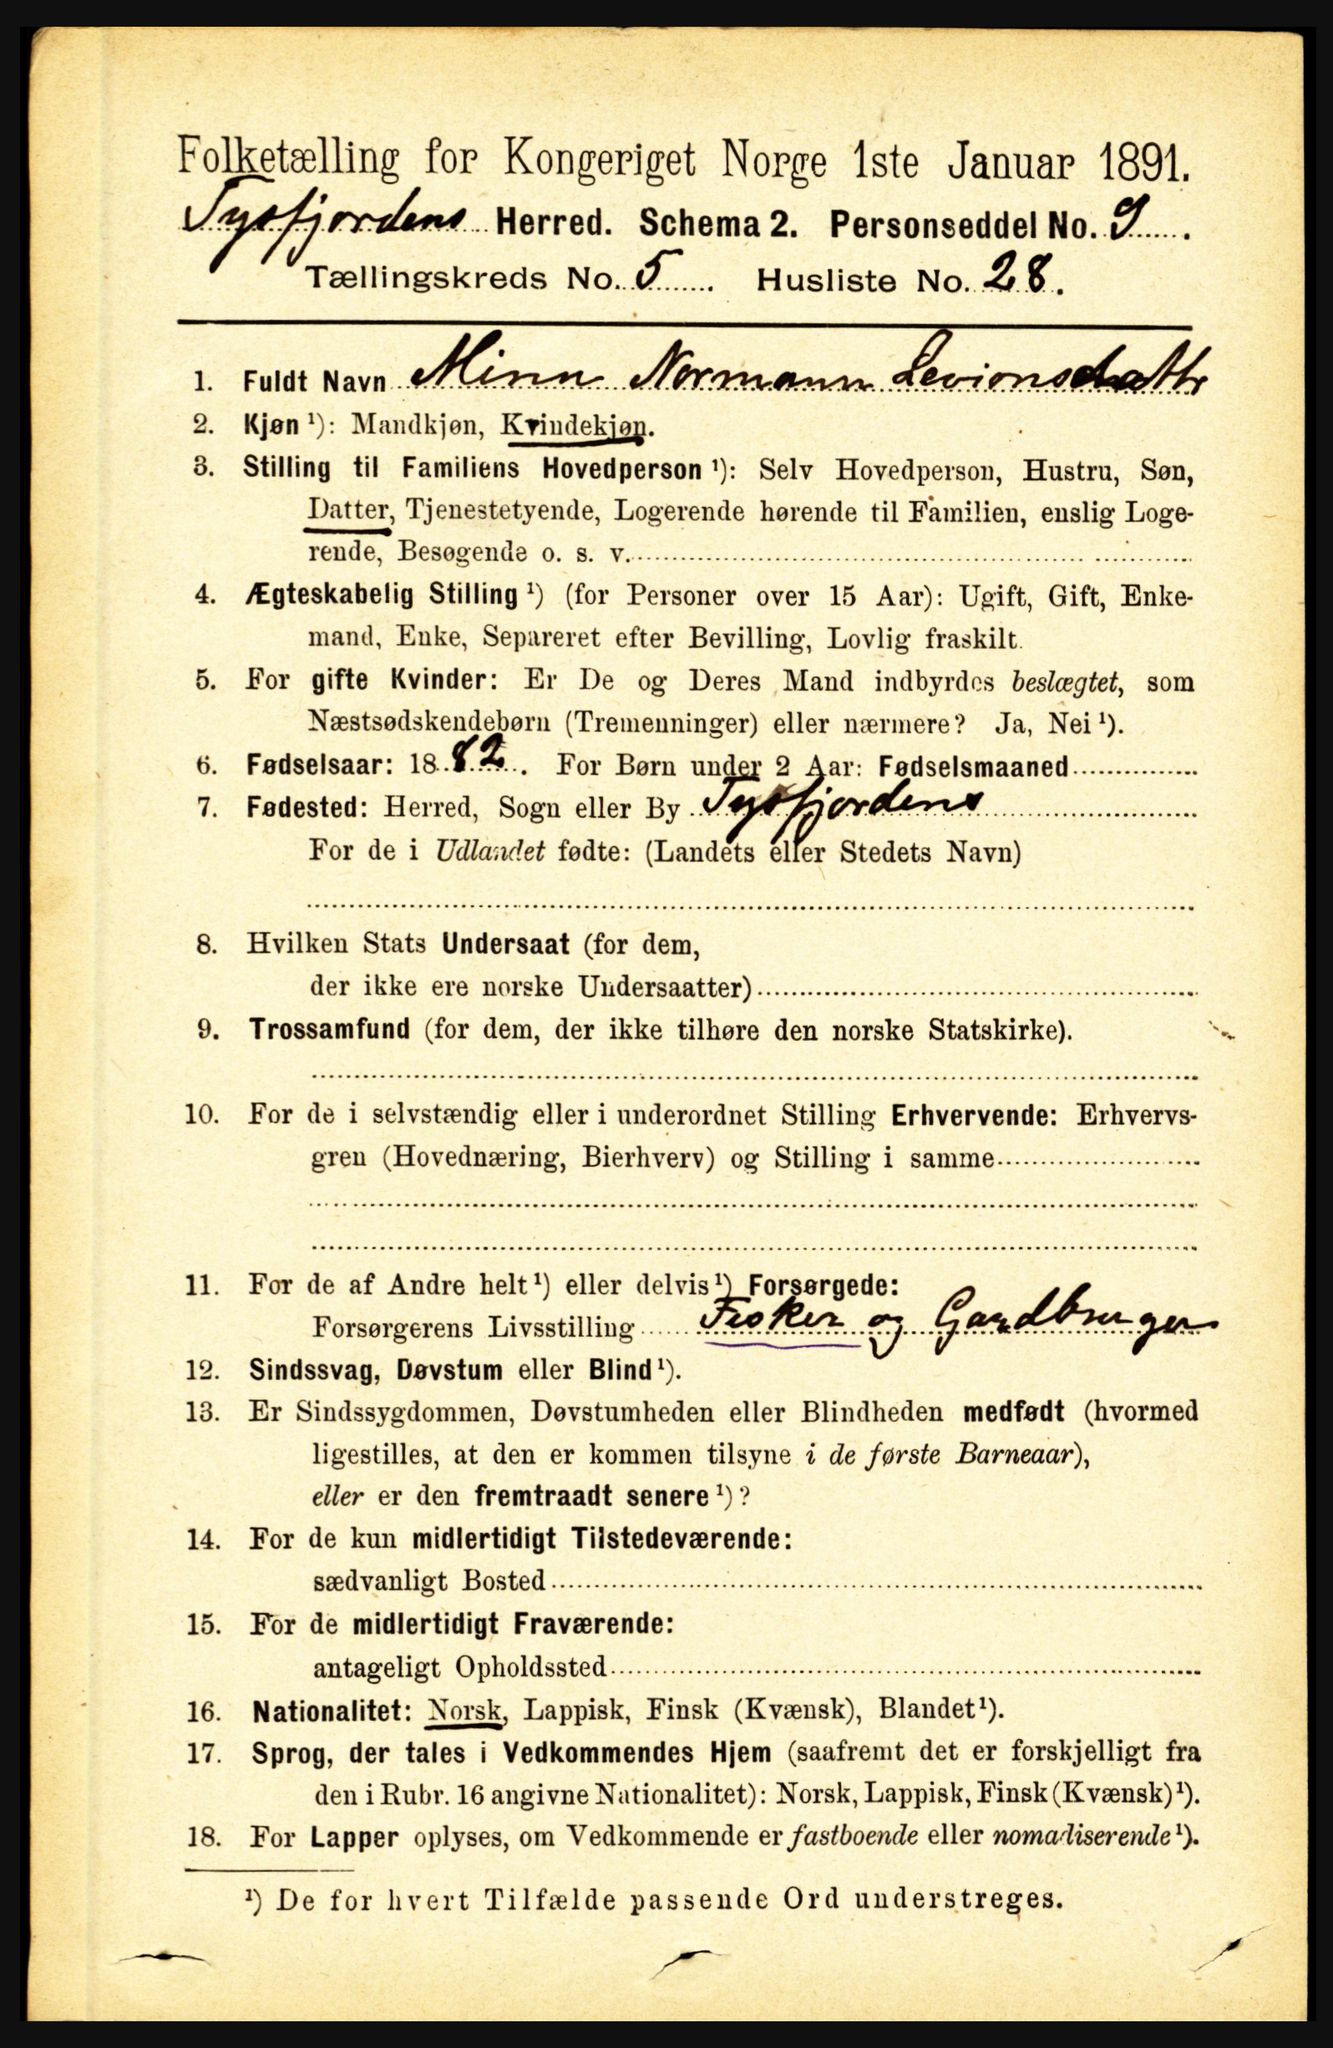 Folketælling for Kongeriget Norge 1ste Januar 1891.
Tysfjordens Herred. Schema 2. Personseddel No. 9.
Tællingskreds No. 5. Husliste No. 28.
1. Fuldt Navn Minn Normann Levionsdattr
2. Kjøn ¹): Mandkjøn, Kvindekjøn.
3. Stilling til Familiens Hovedperson ¹): Selv Hovedperson, Hustru, Søn,
Datter, Tjenestetyende, Logerende hørende til Familien, enslig Loge-
rende, Besøgende o. s. v.
4. Ægteskabelig Stilling ¹) (for Personer over 15 Aar): Ugift, Gift, Enke-
mand, Enke, Separeret efter Bevilling, Lovlig fraskilt.
5. For gifte Kvinder: Er De og Deres Mand indbyrdes beslægtet, som
Næstsødskendebørn (Tremenninger) eller nærmere? Ja, Nei ¹).
6. Fødselsaar: 1882. For Børn under 2 Aar: Fødselsmaaned
7. Fødested: Herred, Sogn eller By Tysfjordens
For de i Udlandet fødte: (Landets eller Stedets Navn)
8. Hvilken Stats Undersaat (for dem,
der ikke ere norske Undersaatter)
9. Trossamfund (for dem, der ikke tilhøre den norske Statskirke).
10. For de i selvstændig eller i underordnet Stilling Erhvervende: Erhvervs-
gren (Hovednæring, Bierhverv) og Stilling i samme
11. For de af Andre helt ¹) eller delvis ¹) Forsørgede:
Forsørgerens Livsstilling Fisker og Gardbruger
12. Sindssvag, Døvstum eller Blind ¹).
13. Er Sindssygdommen, Døvstumheden eller Blindheden medfødt (hvormed
ligestilles, at den er kommen tilsyne i de første Barneaar),
eller er den fremtraadt senere ¹)?
14. For de kun midlertidigt Tilstedeværende:
sædvanligt Bosted
15. For de midlertidigt Fraværende:
antageligt Opholdssted
16. Nationalitet: Norsk, Lappisk, Finsk (Kvænsk), Blandet ¹).
17. Sprog, der tales i Vedkommendes Hjem (saafremt det er forskjelligt fra
den i Rubr. 16 angivne Nationalitet): Norsk, Lappisk, Finsk (Kvænsk) ¹).
18. For Lapper oplyses, om Vedkommende er fastboende eller nomadiserende ¹).
¹) De for hvert Tilfælde passende Ord understreges.